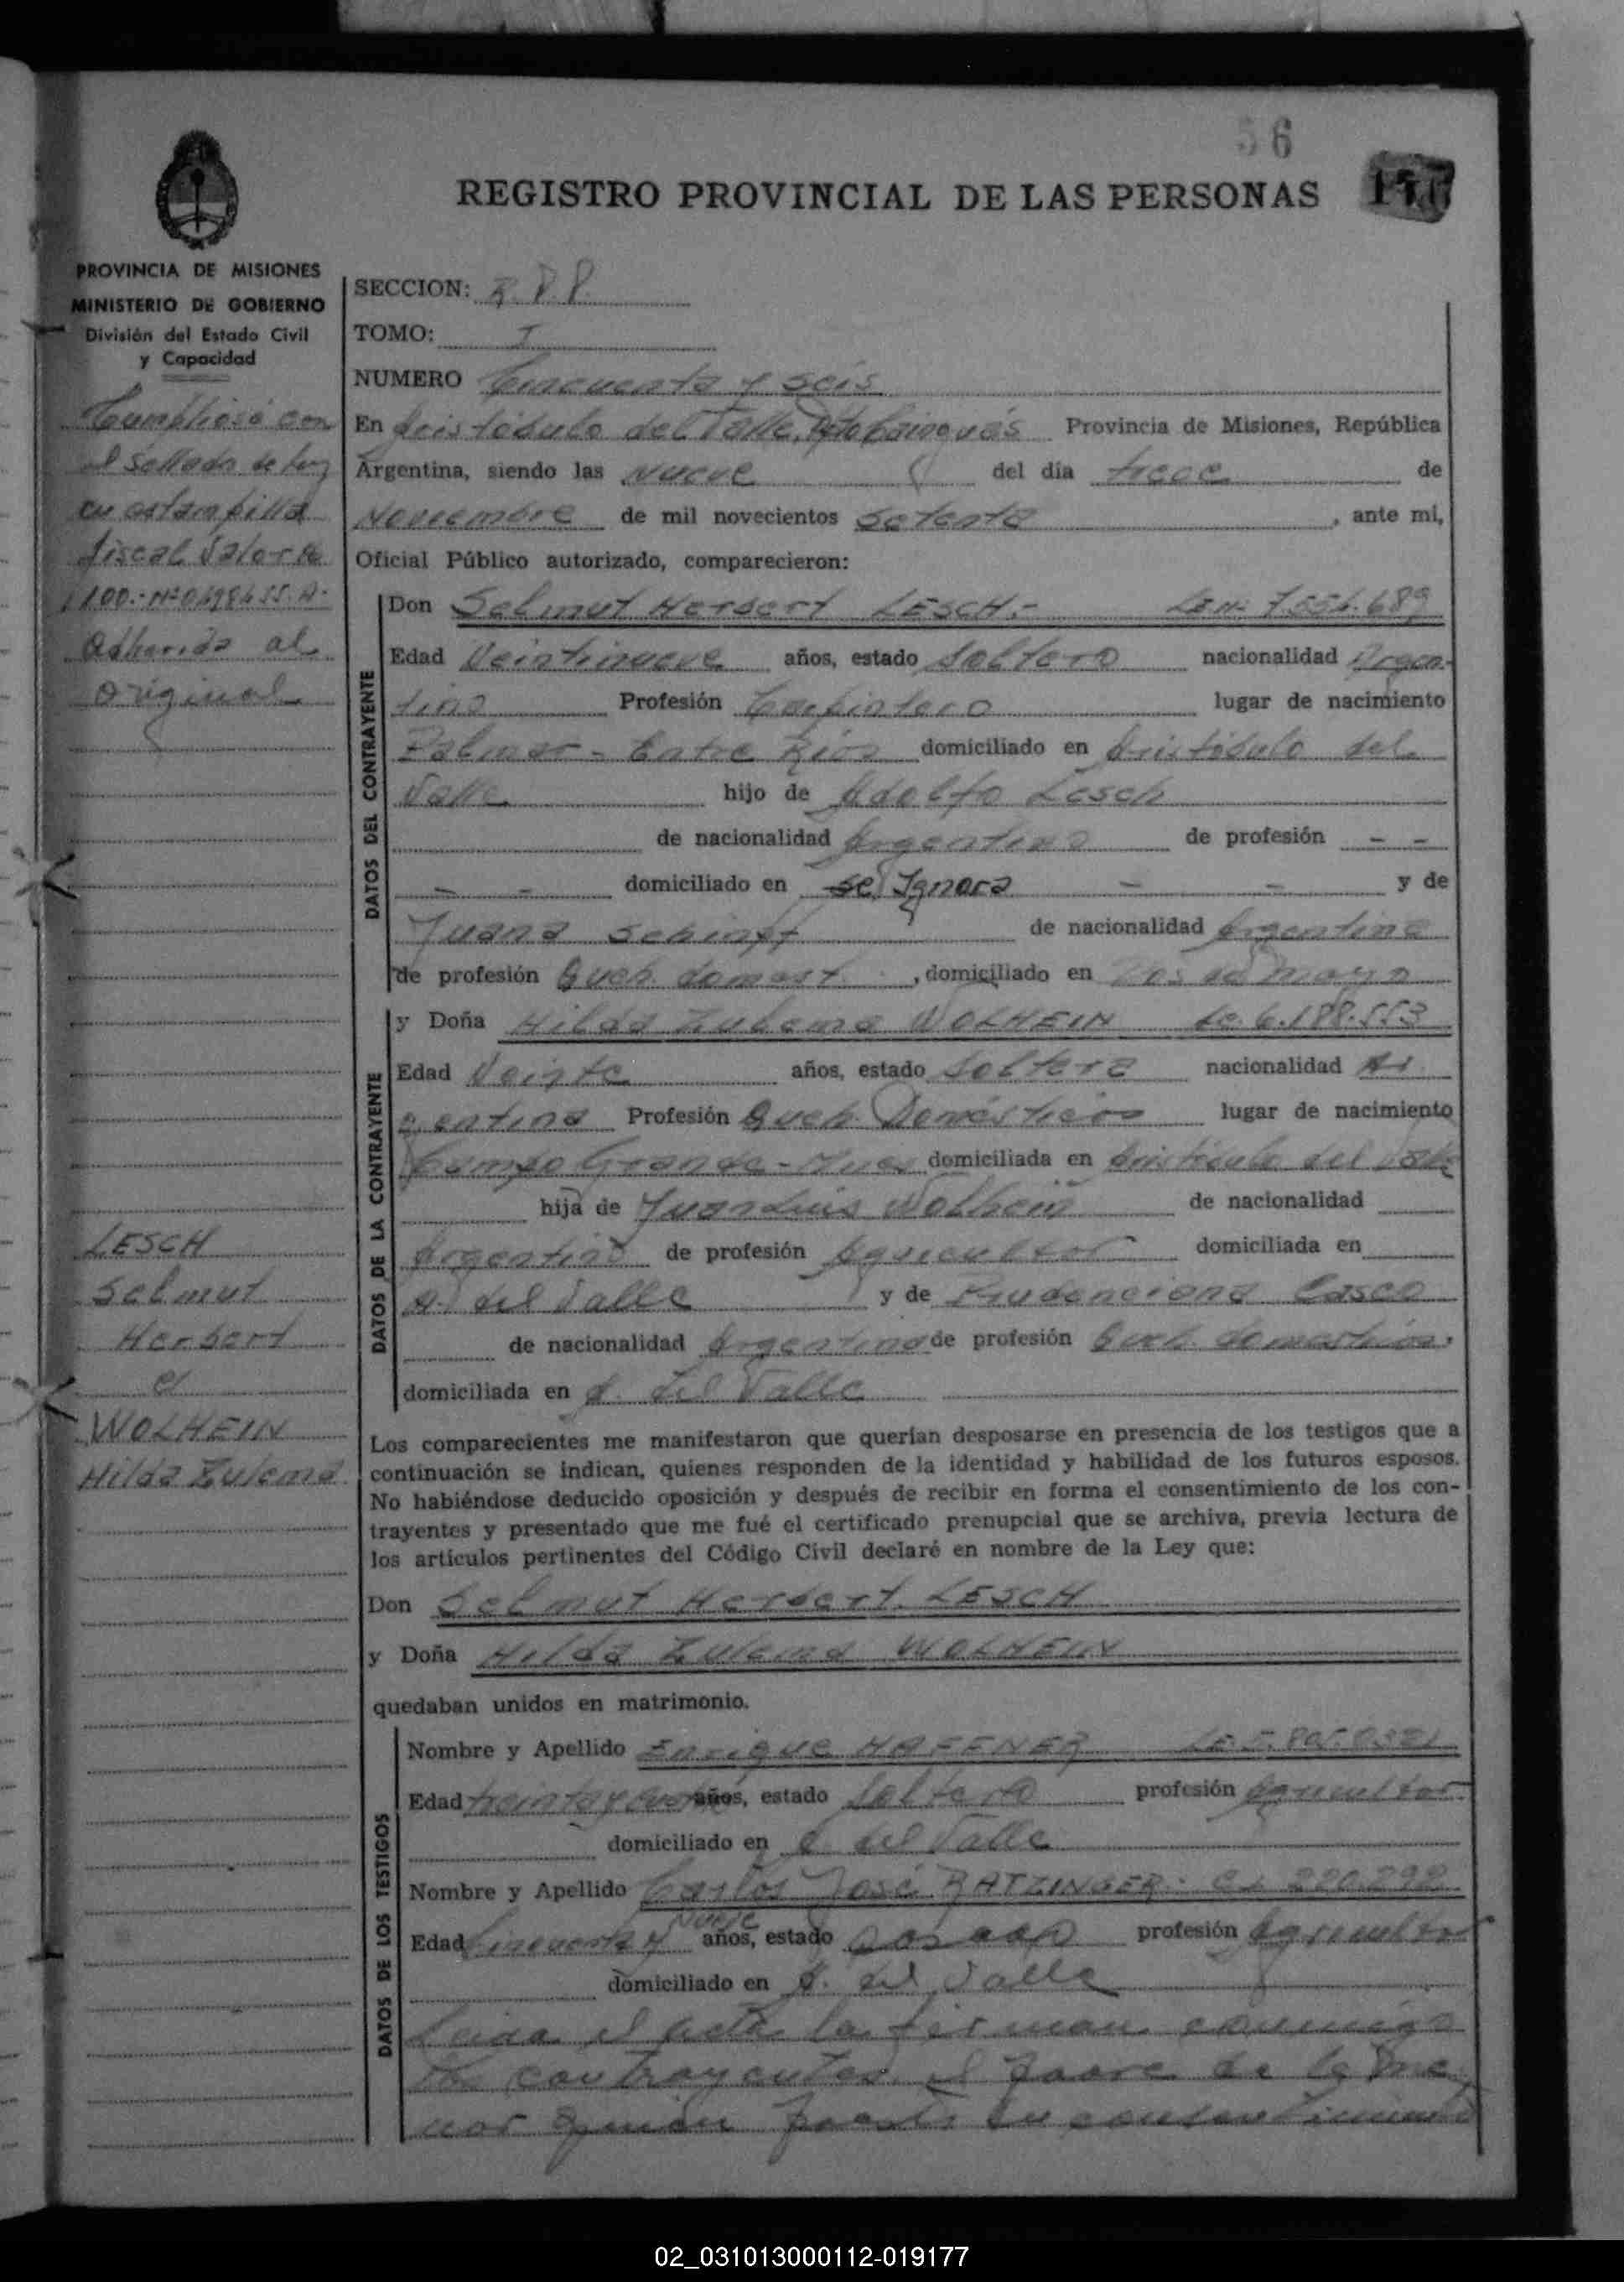 56
REGISTRO PROVINCIAL DE LAS PERSONAS
PROVINCIA DE MISIONES
MINISTERIO DE GOBIERNO
División del Estado Civil
y Capacidad
Cumplióse con
el sellado de ley
en estampilla
fiscal valor de
Adherida al
original
LESCH
Selmut
Herbert
c/
WOLHEIN
Hilda Zulema
SECCION: R.P.P.
TOMO: I
NUMERO Cincuenta y seis
En Aristóbulo del Valle, Dpto Cainguás Provincia de Misiones, República
Argentina, siendo las Nueve del día trece de
Noviembre de mil novecientos Setenta, ante mí,
Oficial Público autorizado, comparecieron:
DATOS DEL CONTRAYENTE
Don Selmut Herbert LESCH.- LE Nº 7.556.689
Edad Veintinueve años, estado Soltero nacionalidad Argen-
tino Profesión Carpintero lugar de nacimiento
Palmar - Entre Ríos domiciliado en Aristóbulo del
Valle hijo de Adolfo Lesch
de nacionalidad Argentino de profesión - -
- - domiciliado en se Ignora - - y de
Juana Schimpf de nacionalidad Argentina
de profesión Queh. domest., domiciliado en 2 de mayo
DATOS DE LA CONTRAYENTE
y Doña Hilda Zulema WOLHEIN LC. 6.188.553
Edad Veinte años, estado Soltera nacionalidad Ar
gentina Profesión Queh. Domésticos lugar de nacimiento
Campo Grande - Mnes domiciliada en Aristóbulo del Valle
hija de Juan Luis Wolhein de nacionalidad
Argentino de profesión Agricultor domiciliada en
A. del Valle y de Prudenciana Casco
de nacionalidad Argentina de profesión Queh. domesticos,
domiciliada en A. del Valle
Los comparecientes me manifestaron que querían desposarse en presencia de los testigos que a
continuación se indican, quienes responden de la identidad y habilidad de los futuros esposos.
No habiéndose deducido oposición y después de recibir en forma el consentimiento de los con-
trayentes y presentado que me fué el certificado prenupcial que se archiva, previa lectura de
los artículos pertinentes del Código Civil declaré en nombre de la Ley que:
Don Selmut Herbert. LESCH
y Doña Hilda Zulema WOLHEIN
quedaban unidos en matrimonio.
DATOS DE LOS TESTIGOS
Nombre y Apellido Enrique HAFENER
Edad treinta y años, estado Soltero profesión Agricultor
domiciliado en A del Valle
Nombre y Apellido Carlos José RATZINGER. CI 220.292
Edad Cincuenta y Nueve años, estado Casado profesión Agricultor
domiciliado en A. del Valle
Leida el acta la firman conmigo
los contrayentes, el padre de la me
nor quien presta su consentimiento
02_031013000112-019177